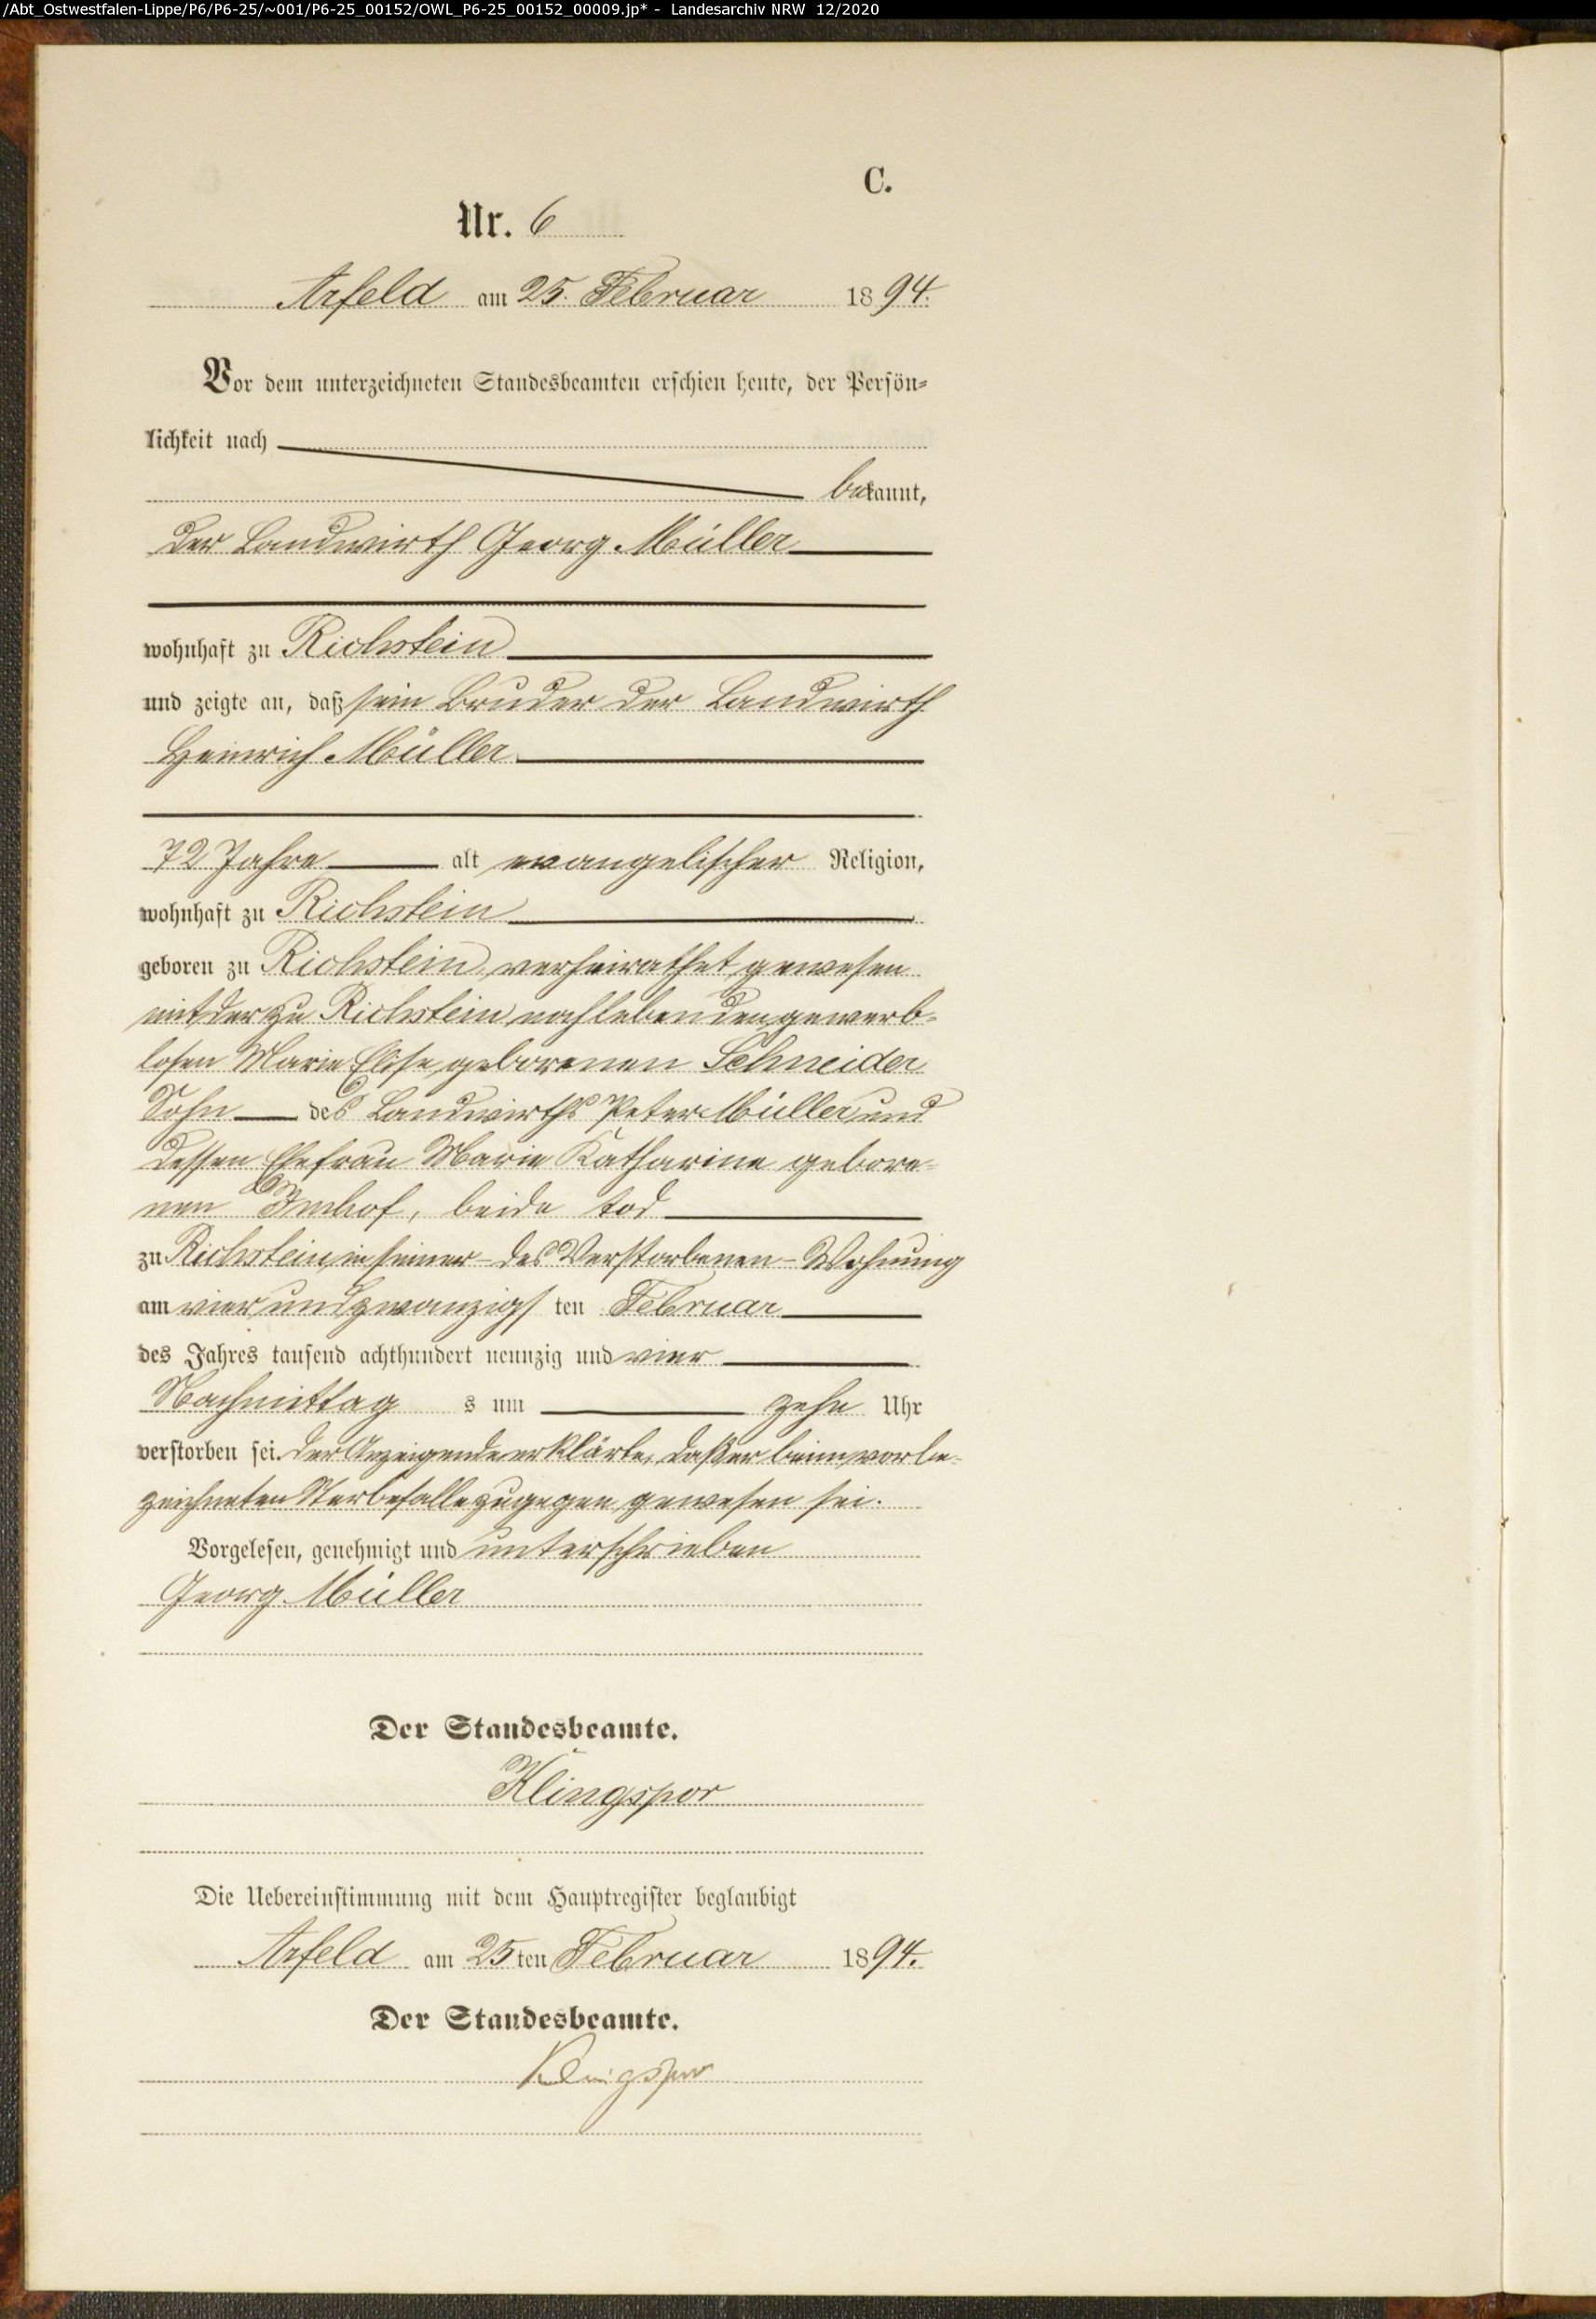 /Abt_Ostwestfalen-Lippe/P6/P6-25/~001/P6-25_00152/OWL_P6-25_00152_00009.jp* - Landesarchiv NRW 12/2020
C.
Nr. 6
Arfeld am 25. Februar 1894.
Vor dem unterzeichneten Standesbeamten erschien heute, der Persön-
lichkeit nach
bekannt,
der Landwirth Georg Müller
wohnhaft zu Richstein
und zeigte an, daß sein Bruder der Landwirth
Heinrich Müller
72 Jahre alt evangelischer Religion,
wohnhaft zu Richstein
geboren zu Richstein, verheirathet gewesen
mit der zu Richstein noch lebenden gewerb-
losen Marie Elise geborenen Schneider
Sohn des Landwirths Peter Müller und
dessen Ehefrau Marie Katharine gebore-
nen Imhof, beide tod
zu Richstein, in seiner - des Verstorbenen - Wohnung
am vier und zwanzigsten Februar
des Jahres tausend achthundert neunzig und vier
Nachmittag s um zehn Uhr
verstorben sei. Der Anzeigende erklärte, daß er beim vorbe-
zeichneten Sterbefalle zugegen gewesen sei.
Vorgelesen, genehmigt und unterschrieben
Georg Müller
Der Standesbeamte.
Klingspor
Die Uebereinstimmung mit dem Hauptregister beglaubigt
Arfeld am 25ten Februar 1894.
Der Standesbeamte.
Klingspor